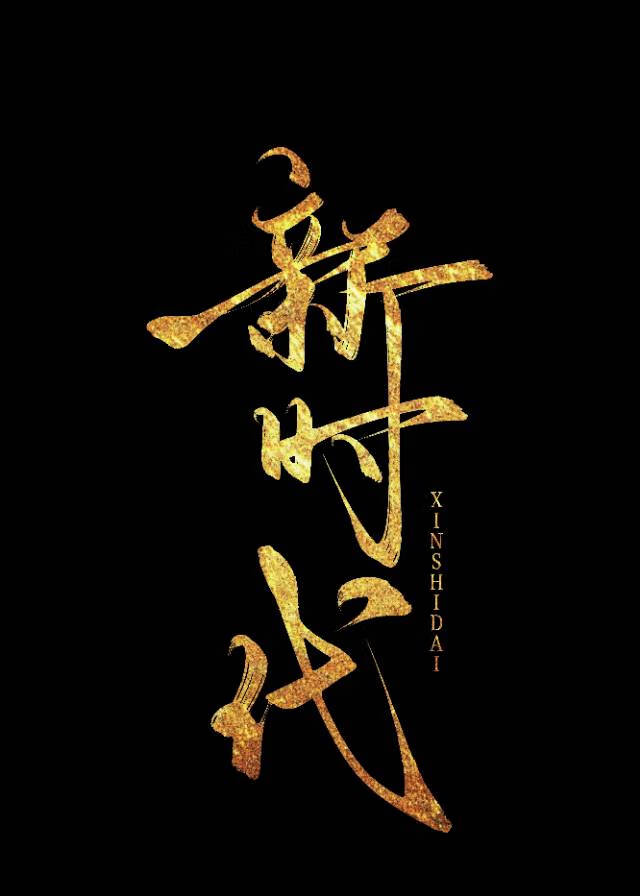 新时代
XINSHIDAI